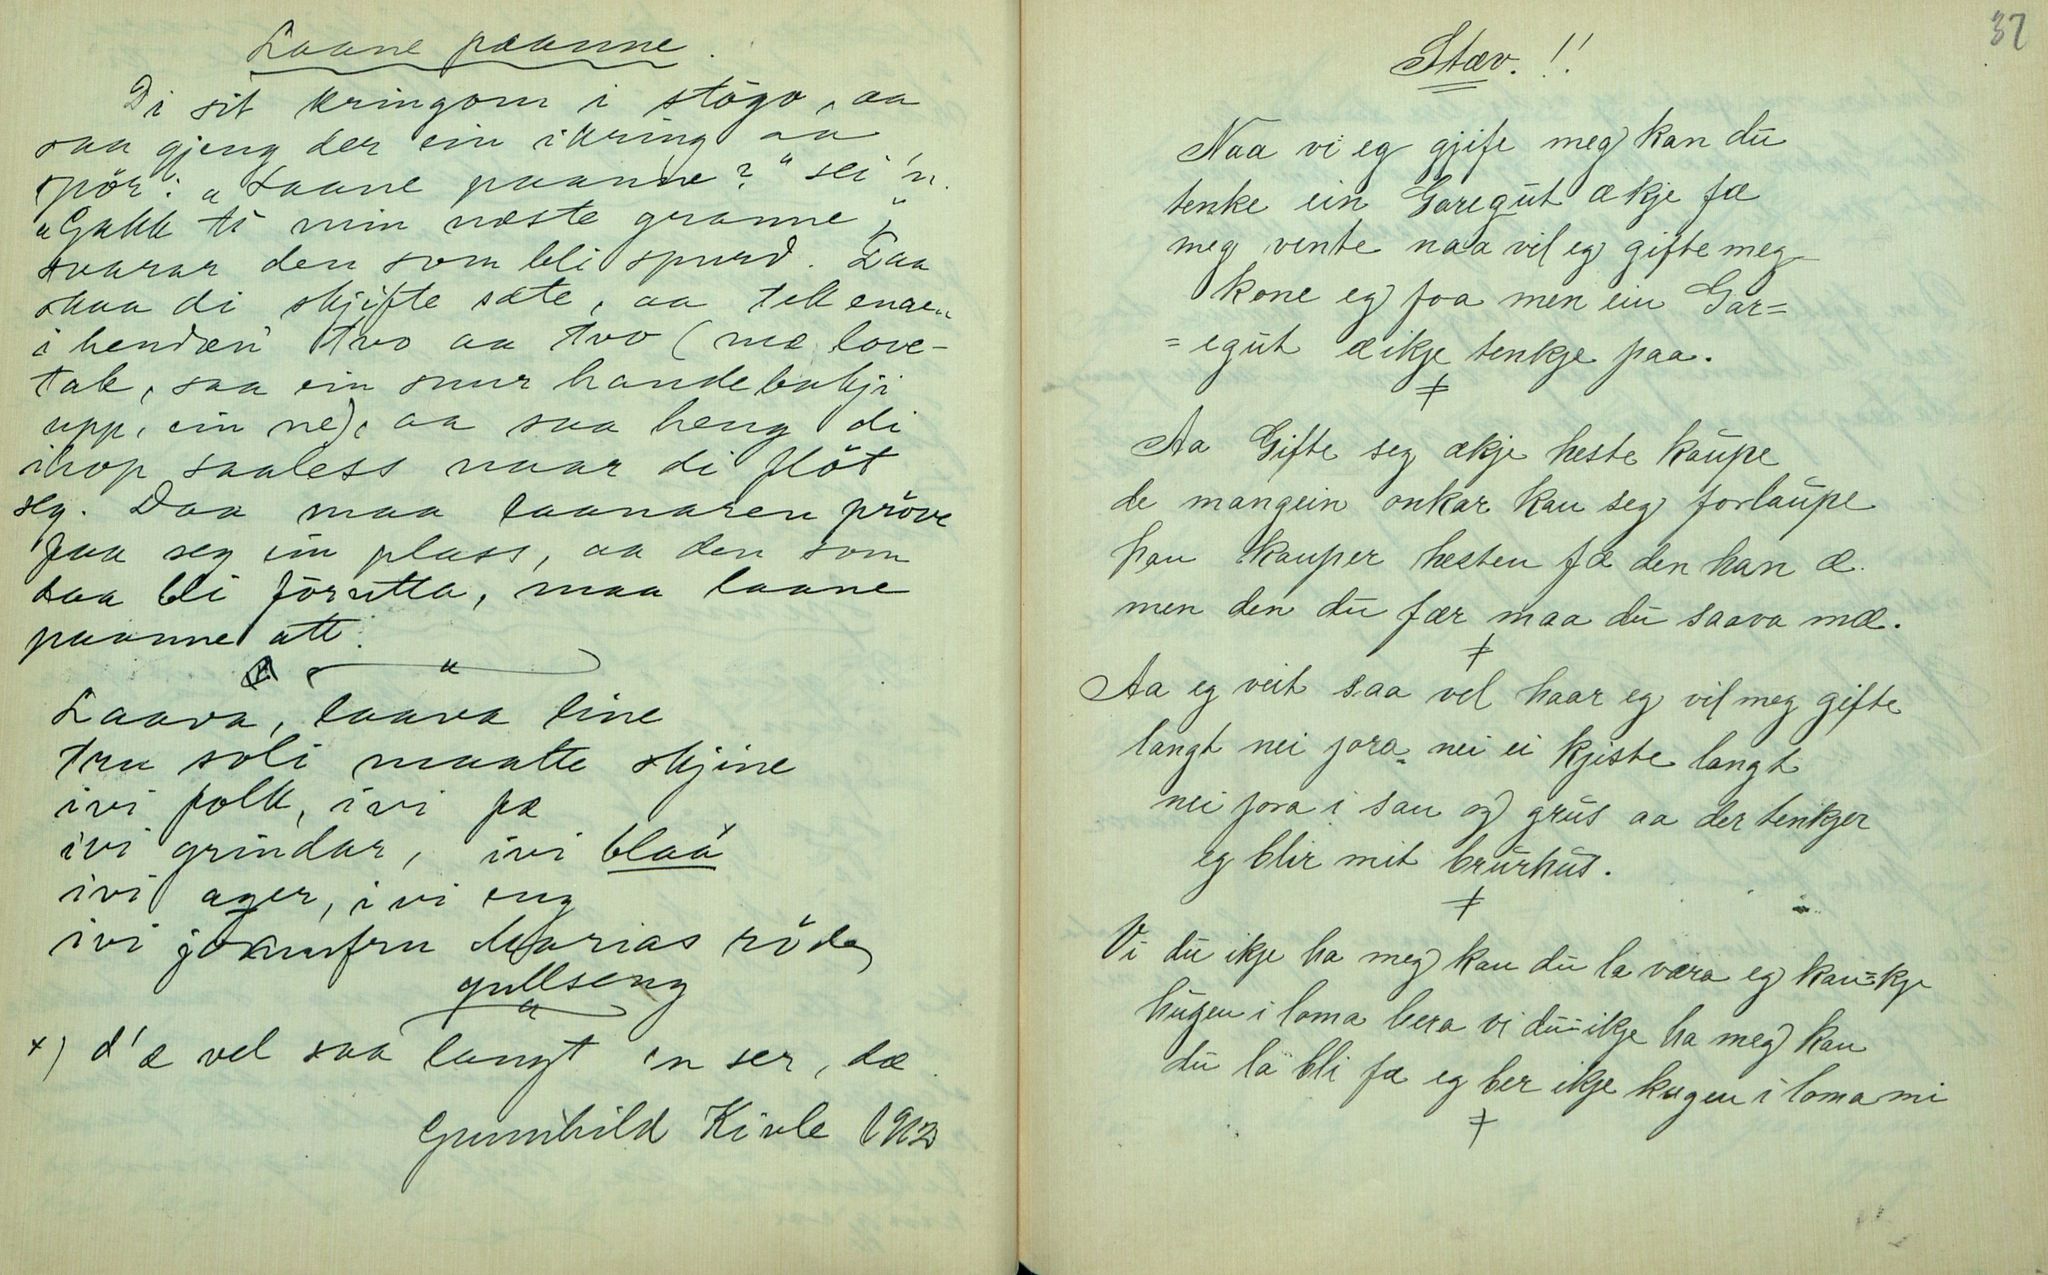 Laane paanne.
Di sit kringom i stögo, aa
saa gjeng der ein ikring aa
spör: „Laane paanne?" sei 'n.
„Gakk ti min næste granne,"
svarar den som bli spurd. Daa
skaa di skjifte sæte, aa tek
i hendæn tvo aa tvo (mæ love-
tak, saa ein snur handebakji
upp, ein ne), aa saa heng di
ihop saaless naar di flöt
seg. Daa maa laanaren pröve
faa seg ein plass, aa den som
daa bli förutta, maa laane
paanne att.
Laava, laava line
tru soli maatte skjine
ivi folk, ivi fæ
ivi grindar, ivi blaa x
ivi ager, ivi eng
ivi jomfru Marias röde
gullseng
x) d'æ vel saa langt 'n ser, dæ.
Gunnhild Kivle 1912
37
Stæv.!!
Naa vi eg gjife meg kan du
tenke ein Garegut ækje fæ
meg vente naa vil eg gifte meg
kone eg foa men ein Gar=
=egut æ ikje tenkje paa.
Aa Gifte seg ækje heste kaupe
de mangein onkar kan seg forlaupe
han kauper hesten fæ den han æ.
men den du fær maa du saava mæ.
Aa eg veit saa vel haar eg vil meg gifte
langt nei jora nei ei kjiste langt
nei jora i san og grus aa der tenkjer
eg blir mit brurhus.
Vi du ikje ha meg kan du la væra eg kan=kje
hugen i loma bera vi du=ikje ha meg kan
du la bli fæ eg ber ikje hugen i loma mi